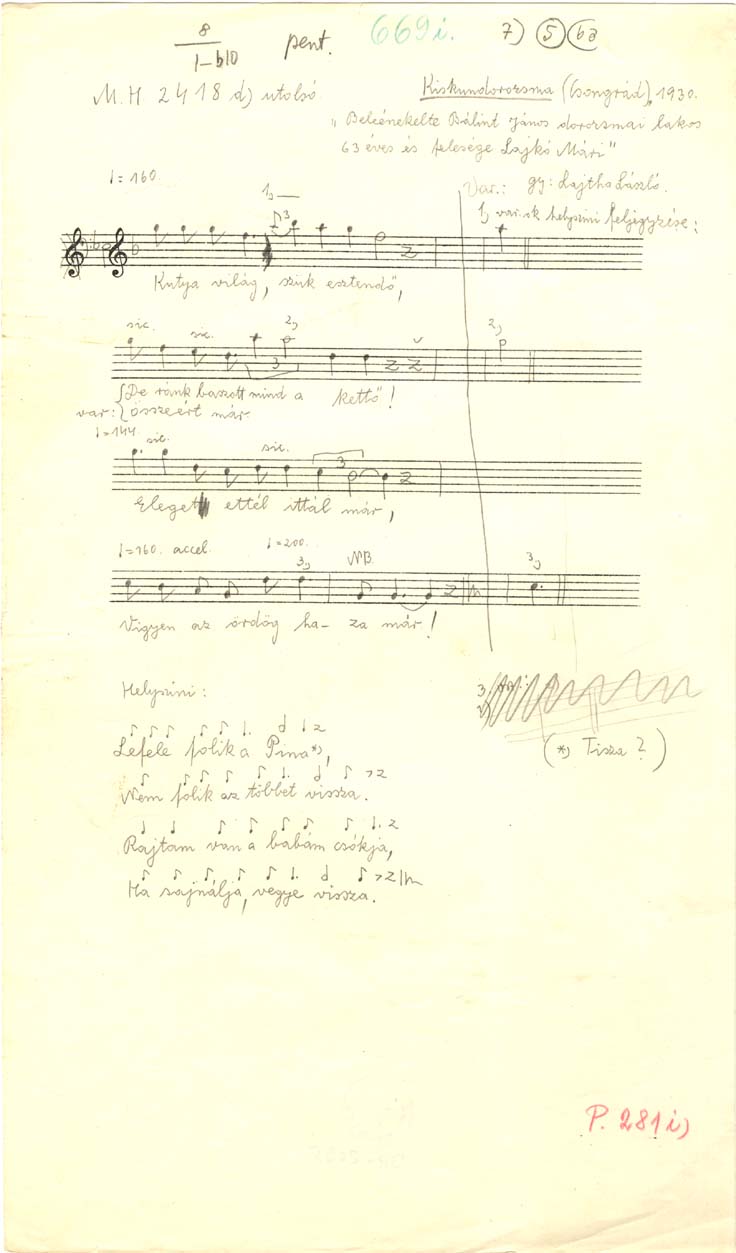 8
1-b10
pent.
669 i.
7) 5 b3
M. H 2418 d) utolsó
Kiskundorozsma (Csongrád), 1930.
"Beleénekelte Bálint János dorozsmai lakos
63 éves és felesége Lajkó Mári"
Var.: gy: Lajtha László.
♩= 160.
1) var.-ok helyszíni feljegyzése:
1)
3
Kutya világ, szük esztendő,
sic. sic. 2) 2)
3
De ránk baszott mind a kettő!
var: összeért már
♩=144 sic. sic.
3
Eleget ettél ittál már,
♩=160. accel. ♩=200. 3) NB. 3)
Vigyen az ördög ha- za már!
Helyszíni:
Lefele folik a Pina*),
(*) Tisza?)
Nem folik az többet vissza.
Rajtam van a babám csókja,
Ha sajnálja, vegye vissza.
P. 281 i)